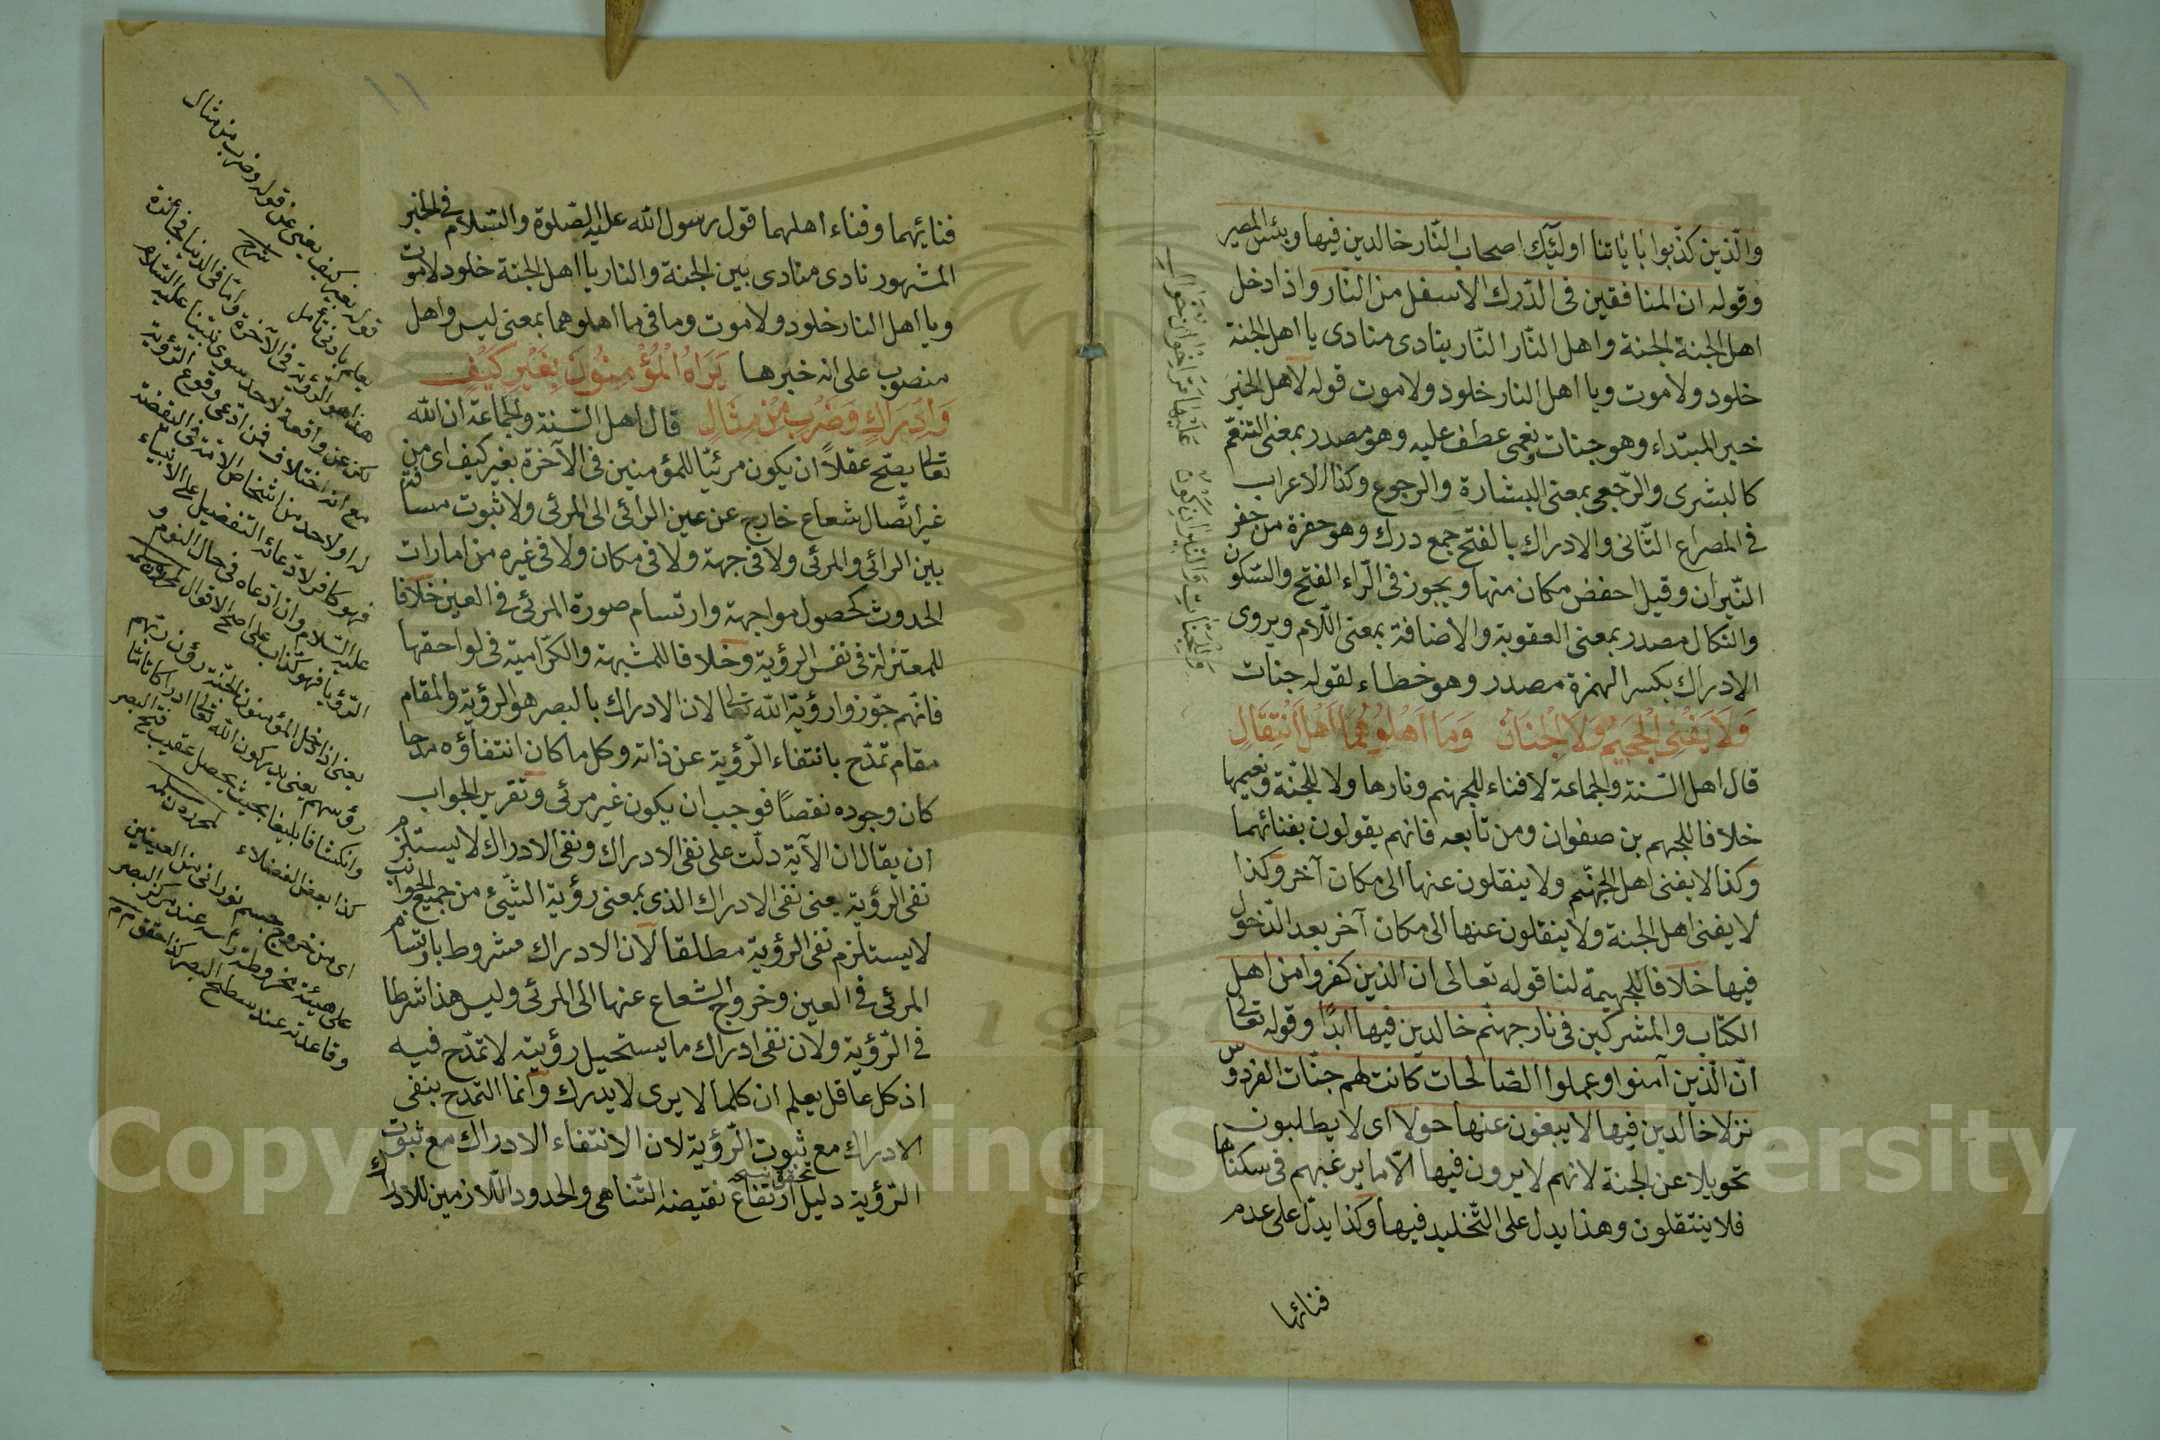 والّذين كذّبوا بايٰاتنا اولئٓك اصحاب النّار خالدين فيها وبئس المصير
وقوله ان المنافقين فى الدّرك الاسفل من النّار واذا دخل
اهل الجنة الجنة واهل النّار النّار ينادى منادى يا اهل الجنة
خلود ولا موت ويا اهل النار خلود ولا موت قوله لاهل الخير
خبر المبتداء وهو جنات ونعمى عطف عليه وهو مصدر بمعنى التنعّم
كالبشرى والرّجعى بمعنى البشارة والرجوع وكذا الاعراب
فى المصراع الثّانى والادراك بالفتح جمع درك وهو حفرة من حفر
النّيران وقيل احفض مكان منها ويجوز فى الرّاء الفتح والسّكون
والنكال مصدر بمعنى العقوبة والاضافة بمعنى اللّام ويروى
الادراك بكسر الهمزة مصدر وهو خطاء لقوله جنات
وَلَا يَفْنَى الْجَحِيمُ وَلَا الْجِنَانُ وَمَا اَهْلُوهُمَا اَهْلُ انْتِقَالِ
قال اهل السّنة والجماعة لا فناء للجهنم ونارها ولا للجنّة ونعيمها
خلافا للجهم بن صفوان ومن تابعه فانهم يقولون بفنائهما
وكذا لا يفنى اهل الجهنّم ولا ينقلون عنها الى مكان آخر وكذا
لا يفنى اهل الجنة ولا ينقلون عنها الى مكان آخر بعد الدّخول
فيها خلافا للجهيمة لنا قوله تعالى ان الذين كفروا من اهل
الكتاب والمشركين فى نار جهنّم خالدين فيها ابدًا وقوله تعالى
انّ الّذين آمنوا وعملوا الصّالحات كانت لهم جنّات الفردوس
نزلا خالدين فيها لا يبغون عنها حولا اى لا يطلبون
تحويلا عن الجنة لانهم لا يرون فيها الّا ما يرغبهم فى سكناها
فلا ينتقلون وهذا يدل على التّخليد فيها وكذا يدلّ على عدم
فنائها
فنائهما وفناء اهلهما قول رسول الله عليه الصّلوة والسّلام فى الخبر
المشهور نادى منادى بين الجنة والنار يا اهل الجنة خلود لا موت
ويا اهل النار خلود ولا موت وما فى ما اهلوهما بمعنى ليس واهل
منصوب على انه خبرها يَرَاهُ الْمُؤْمِنُونَ بِغَيْرِ كَيْفٍ
وَاِدْرَاكٍ وَضَرْبٍ مِنْ مِثَالِ قال اهل السّنة والجماعة ان الله
تعالى يصحّ عقلًا ان يكون مرئيّا للمؤمنين فى الآخرة بغير كيف اى من
غير اتّصال شعاع خارج عن عين الرائى الى المرئى ولا ثبوت مسافة
بين الرائى والمرئى ولا فى جهة ولا فى مكان ولا فى غيره من امارات
الحدوث كحصول مواجهة وارتسام صورة المرئى فى العين خلافا
للمعتزلة فى نفس الرؤية وخلافا للمشبهة والكرّامية فى لواحقها
فانّهم جوّزوا رؤية الله تعالى لان الادراك بالبصر هو الرؤية والمقام
مقام تمدّح بانتفاء الرّؤية عن ذاته وكل ما كان انتفاؤه مدحا
كان وجوده نقصًا فوجب ان يكون غير مرئى وتقرير الجواب
ان يقال ان الآية دلّت على نفى الادراك ونفى الادراك لا يستلزم
نفى الرؤية يعنى نفى الادراك الذى بمعنى رؤية الشّىء من جميع الجوانب
لا يستلزم نفى الرؤية مطلقا لان الادراك مشروط بارتسام
المرئى فى العين وخروج الشعاع عنها الى المرئى وليس هذا شرطا
فى الرّؤية ولان نفى ادراك ما يستحيل رؤيته لا تمدّح فيه
اذ كل عاقل يعلم ان كلما لا يرى لا يدرك وانما التمدّح بنفى
الادراك مع ثبوت الرّؤية لان الانتفاء الادراك مع ثبوت
الرّؤية دليل ارتفاع نقيضه التّناهى والحدود اللّازمين للادراك
قوله بغير كيف يغنى عن قوله وضرب من مثال
يعلم بادنى تأمل شرح
هذا هو الرّؤية فى الآخرة وامّا فى الدنيا
مع انه اختلاف فمن ادعى وقوع الرّؤية
فهو كافر لادعائه التفضيل على الانبياء
عليه السّلام وان ادّعاه فى حال النوم
يعنى اذا دخل المؤمنون الجنة رؤن ربّهم
وانكشافا بليغا بحيث يحصل عقيب فتح البصر
كذا بعض الفضلاء
اى من خروج جسم نورانى من العينين
على هيئة مخروطة رأسه عند مركز البصر
وقاعدته عند سطح
Copyright © King Saud University
1957